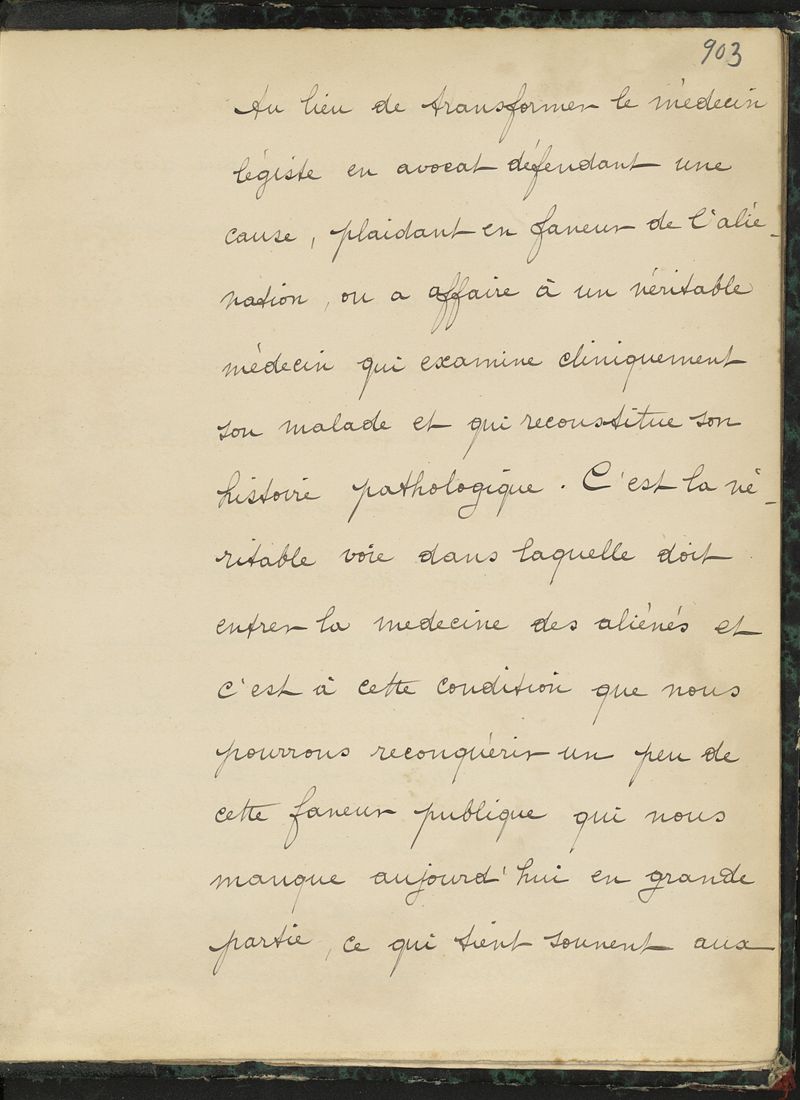 903
Au lieu de transformer le médecin
légiste en avocat défendant une
cause, plaidant en faveur de l'alié-
nation, on a affaire à un véritable
médecin qui examine cliniquement
son malade et qui reconstitue son
histoire pathologique. C'est la vé-
ritable voie dans laquelle doit
entrer la medecine des aliénés et
c'est à cette condition que nous
pourrons reconquérir un peu de
cette faveur publique qui nous
manque aujourd'hui en grande
partie, ce qui tient souvent aux